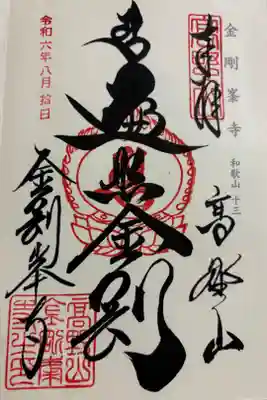 金剛峯寺
和歌山 十三
奉拝
高野山
南無遍照金剛
令和六年八月拾日
金剛峯寺
高野山
金剛峯